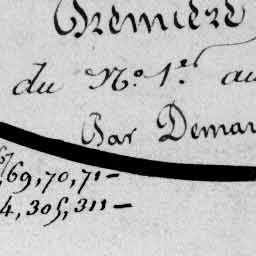 Première
du N.º 1.er au
Par Demar
69, 70, 71 -
4, 305, 311 -